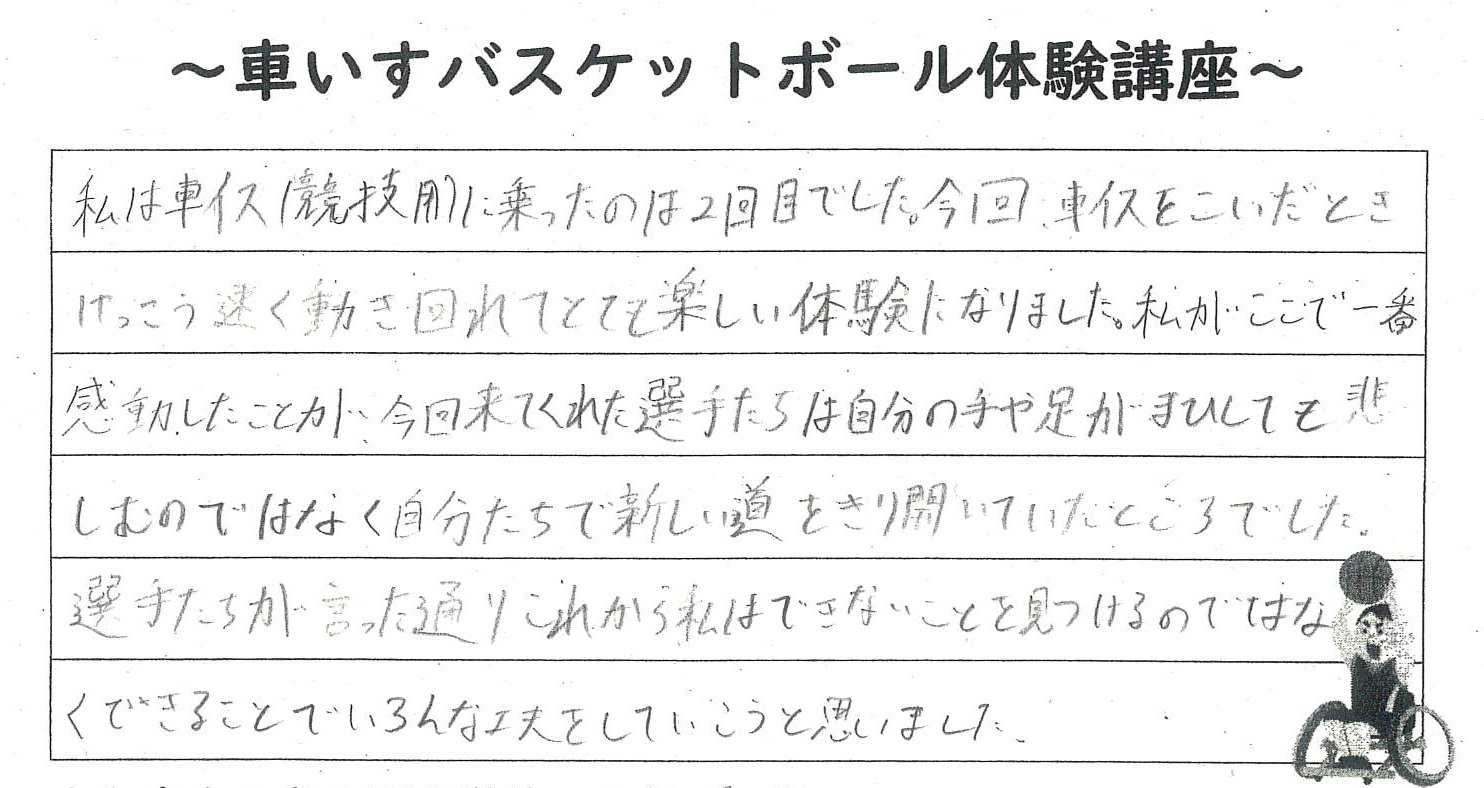 ～車いすバスケットボール体験講座～
私は車イス(競技用)に乗ったのは2回目でした。今回、車イスをこいだとき
けっこう速く動き回れてとても楽しい体験になりました。私がここで一番
感動したことが、今回来てくれた選手たちは自分の手や足がまひしても悲
しむのではなく自分たちで新しい道をきり開いていたところでした。
選手たちが言った通りこれから私はできないことを見つけるのではな
くできることでいろんな工夫をしていこうと思いました。